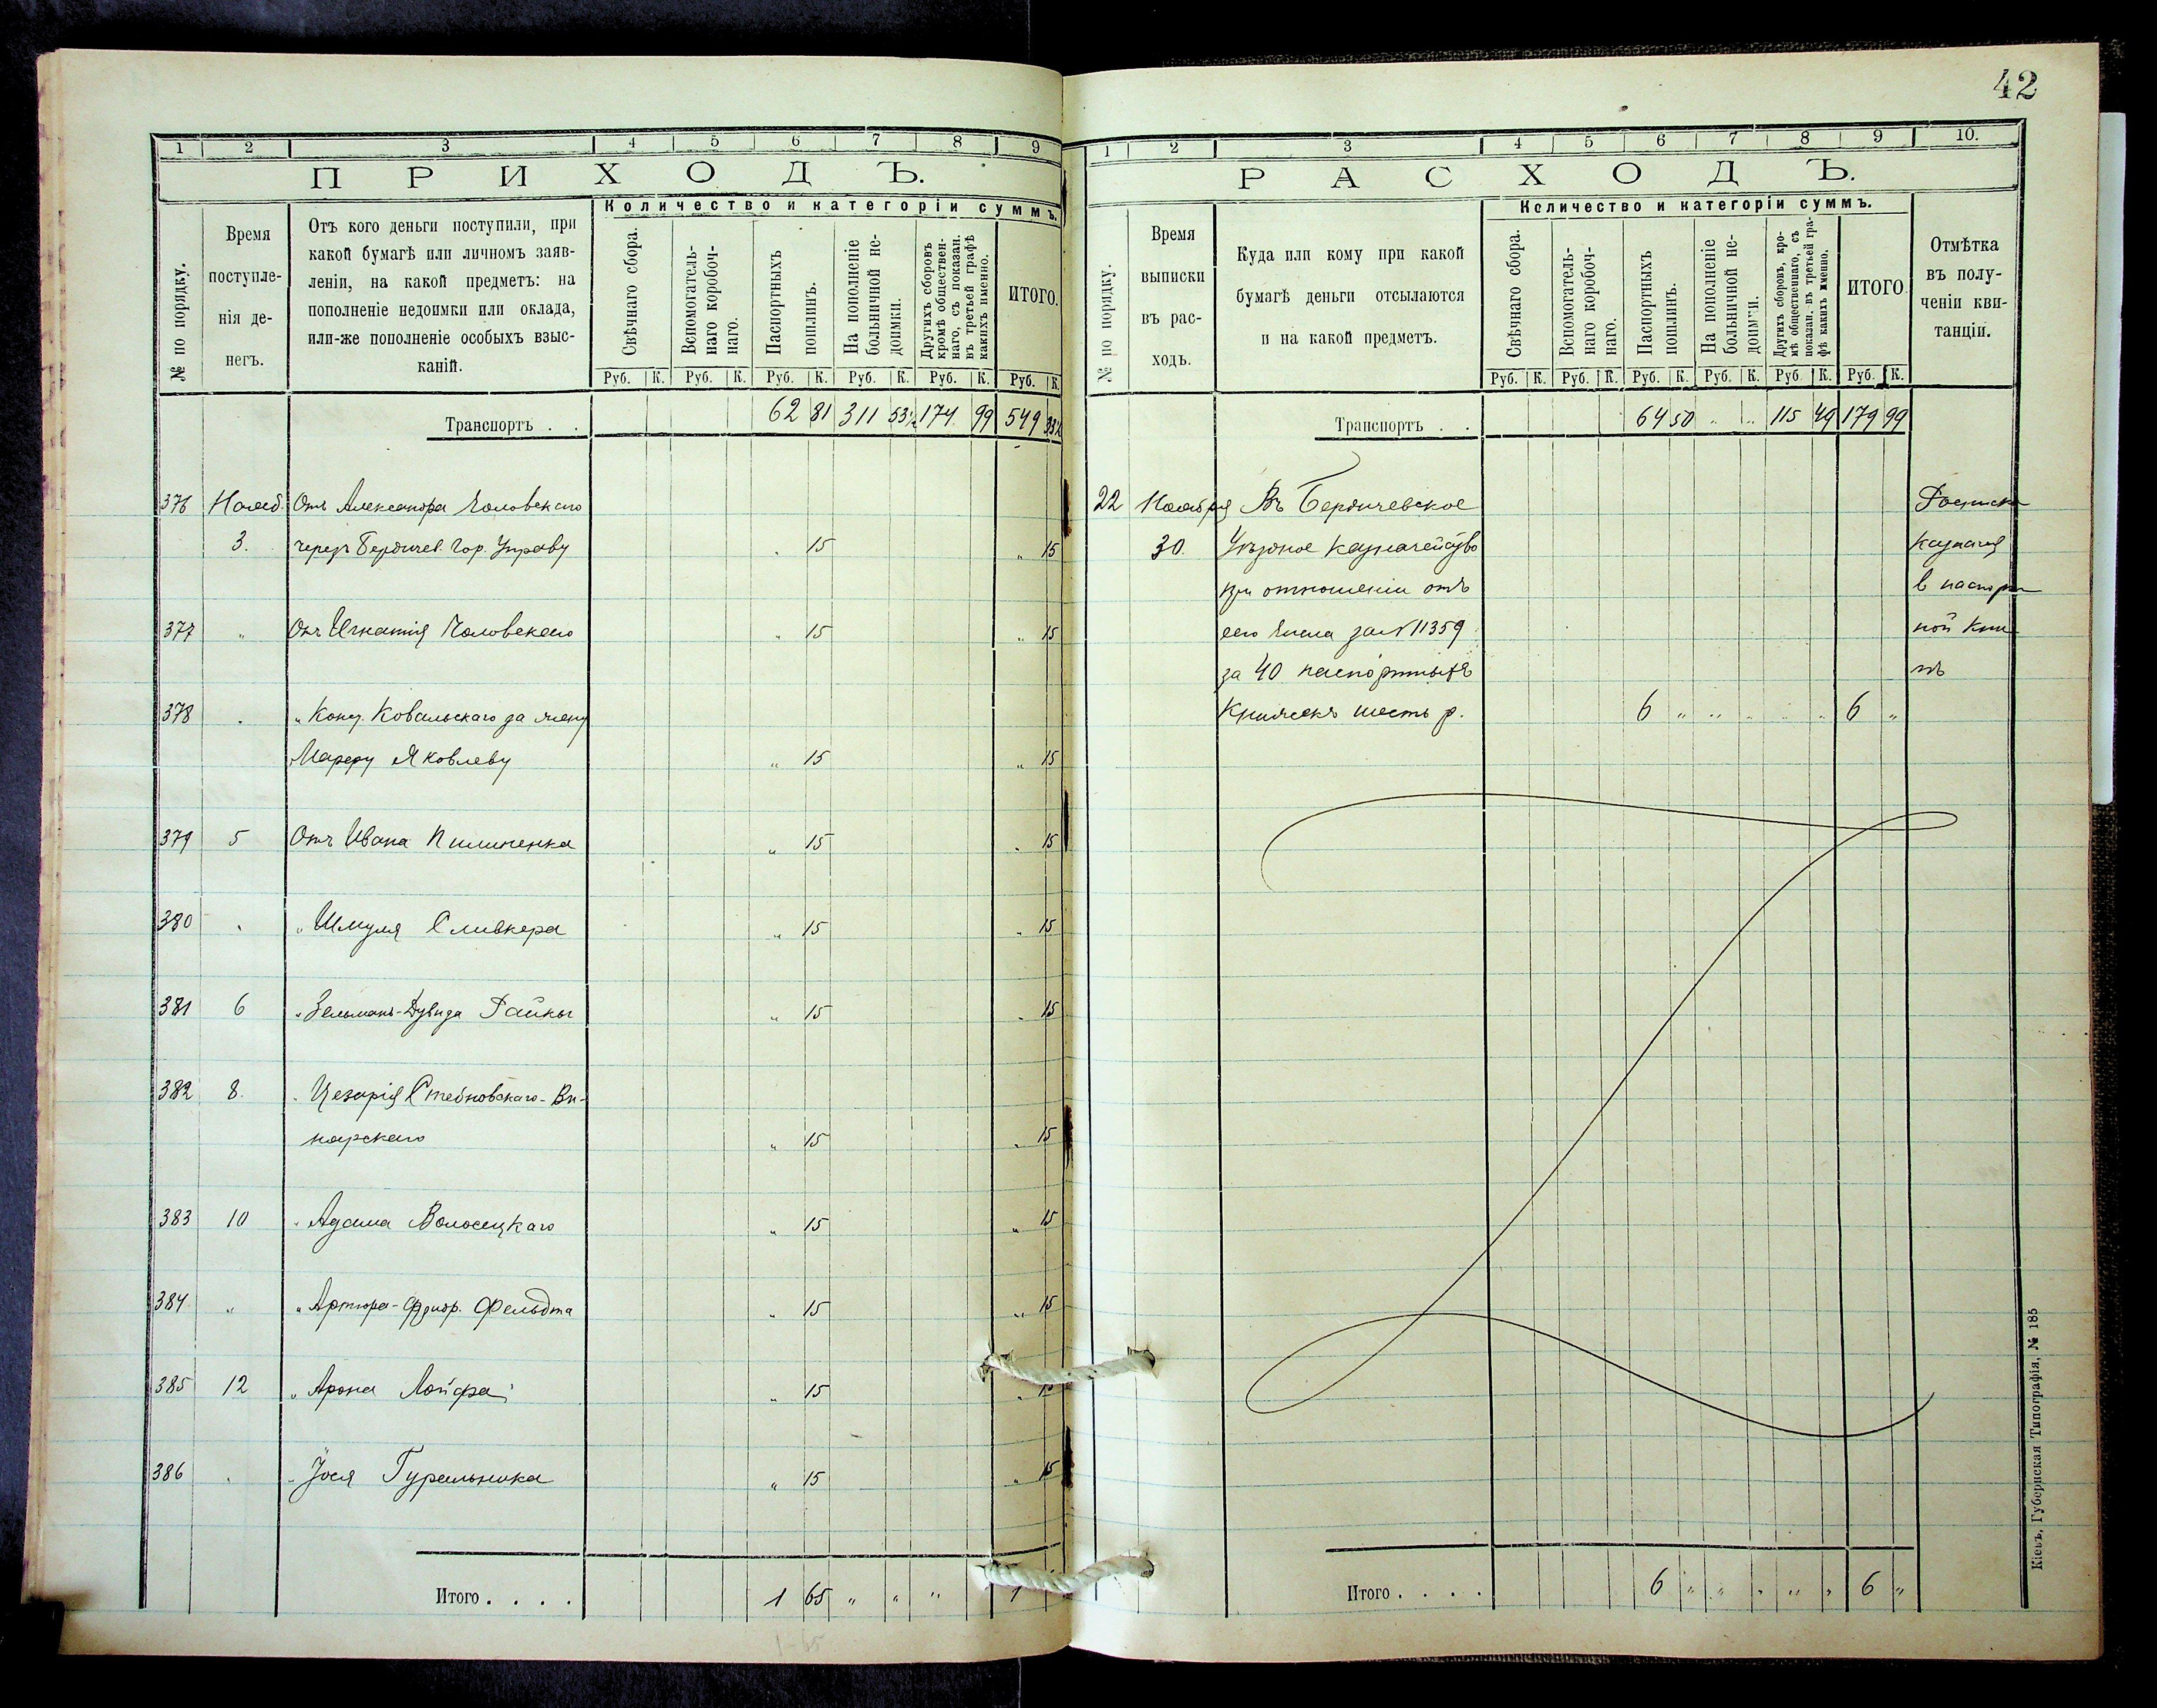 42
1 2 3 4 5 6 7 8 9
ПРИХОДЪ.
Количество и категоріи суммъ.
№ по порядку.
Время
поступле-
нія де-
негъ.
Отъ кого деньги поступили, при
какой бумагѣ или личномъ заяв-
леніи, на какой предметъ: на
пополненіе недоимки или оклада,
или-же пополненіе особыхъ взыс-
каній.
Свѣчнаго сбора.
Вспомогатель-
наго коробоч-
наго.
Паспортныхъ
пошлинъ.
На пополненіе
больничной не-
доимки.
Другихъ сборовъ
кромѣ обществен-
наго, съ показан.
въ третьей графѣ
какихъ именно.
ИТОГО.
Руб. К. Руб. К. Руб. К. Руб. К. Руб. К. Руб. К.
Транспортъ . . 62 81 311 53½ 174 99 549 33½
376 Нояб. Отъ Александра
3. черезъ Бердичев. Гор. Управу „ 15 „ 15
377 „ Отъ Игнатія „ 15 „ 15
378 „ „ Конс. Ковальскаго за жену
Марфу Яковлеву „ 15 „ 15
379 5 Отъ Ивана Пилипенка „ 15 „ 15
380 „ „ Шмуля Сливкера „ 15 „ 15
381 6 „ Зельманъ-Дувида „ 15 „ 15
382 8. „ Цезарія
нарскаго „ 15 „ 15
383 10 „ Адама Волосецкаго „ 15 „ 15
384 „ „ Артура- Фельдта „ 15 „ 15
385 12 „ Арона „ 15 „ 15
386 „ „ Іося Гуральника „ 15 „ 15
Итого . . . . 1 65 „ „ „ 1
1-65
1 2 3 4 5 6 7 8 9 10.
РАСХОДЪ.
Количество и категоріи суммъ.
№ по порядку.
Время
выписки
въ рас-
ходъ.
Куда или кому при какой
бумагѣ деньги отсылаются
и на какой предметъ.
Свѣчнаго сбора.
Вспомогатель-
наго коробоч-
наго.
Паспортныхъ
пошлинъ.
На пополненіе
больничной не-
доимки.
Другихъ сборовъ, кро-
мѣ общественнаго, съ
показан. въ третьей гра-
фѣ какихъ именно.
ИТОГО
Отмѣтка
въ полу-
ченіи кви-
танціи.
Руб. К. Руб. К. Руб. К. Руб. К. Руб. К. Руб. К.
Транспортъ . . 64 50 „ „ 115 49 179 99
22 Ноября Въ Бердичевское Росписка
30. Уѣздное Казначейство Казначея
при отношеніи отъ в паспорт
сего числа за № 11359 ной Кни
за 40 паспортныхъ гѣ
Книжекъ шесть р. 6 „ „ „ „ „ 6 „
Итого . . . . 6 „ „ „ „ „ 6 „
Кіевъ, Губернская Типографія, № 185